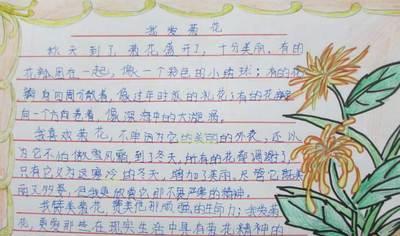 我爱菊花
秋天到了，菊花盛开了，十分美丽。有的
花瓣闭在一起，像一个彩色的小绣球；有的花
瓣自向四周散着，像过年时放的礼花；有的花瓣
向一个方向卷着，像深海中的大漩涡。
我喜欢菊花，不单因为它的美丽的外表，还以
为它不怕傲雪风霜，到了冬天，所有的花都凋谢了，
只有它又为这寒冷的冬天，增加了美丽，尽管它既美
丽又好看，但我更欣赏它那不畏严寒的精神。
我赞美菊花，赞美他那顽强的生命力；我爱菊
花，更爱那些在现实生活中具有菊花精神的